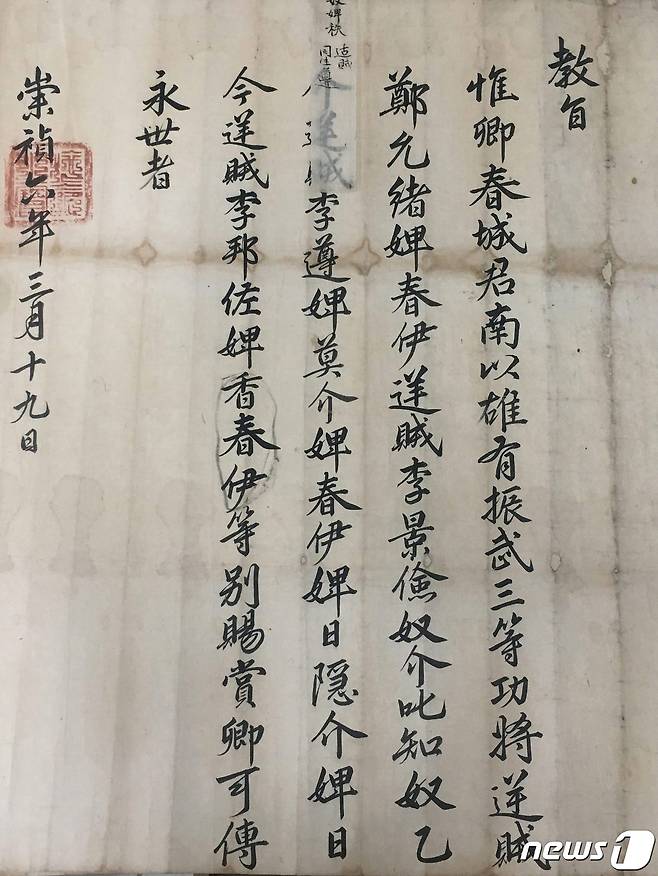 教旨
惟卿春城君南以雄有振武三等功將逆賊
鄭允緖婢春伊逆賊李景儉奴介叱知奴乙
李遵婢莫介婢春伊婢日隱介婢日
今逆賊李邦佐婢香春伊等別賜賞卿可傳
永世者
崇禎六年三月十九日
逆賊
奴婢秩
news1